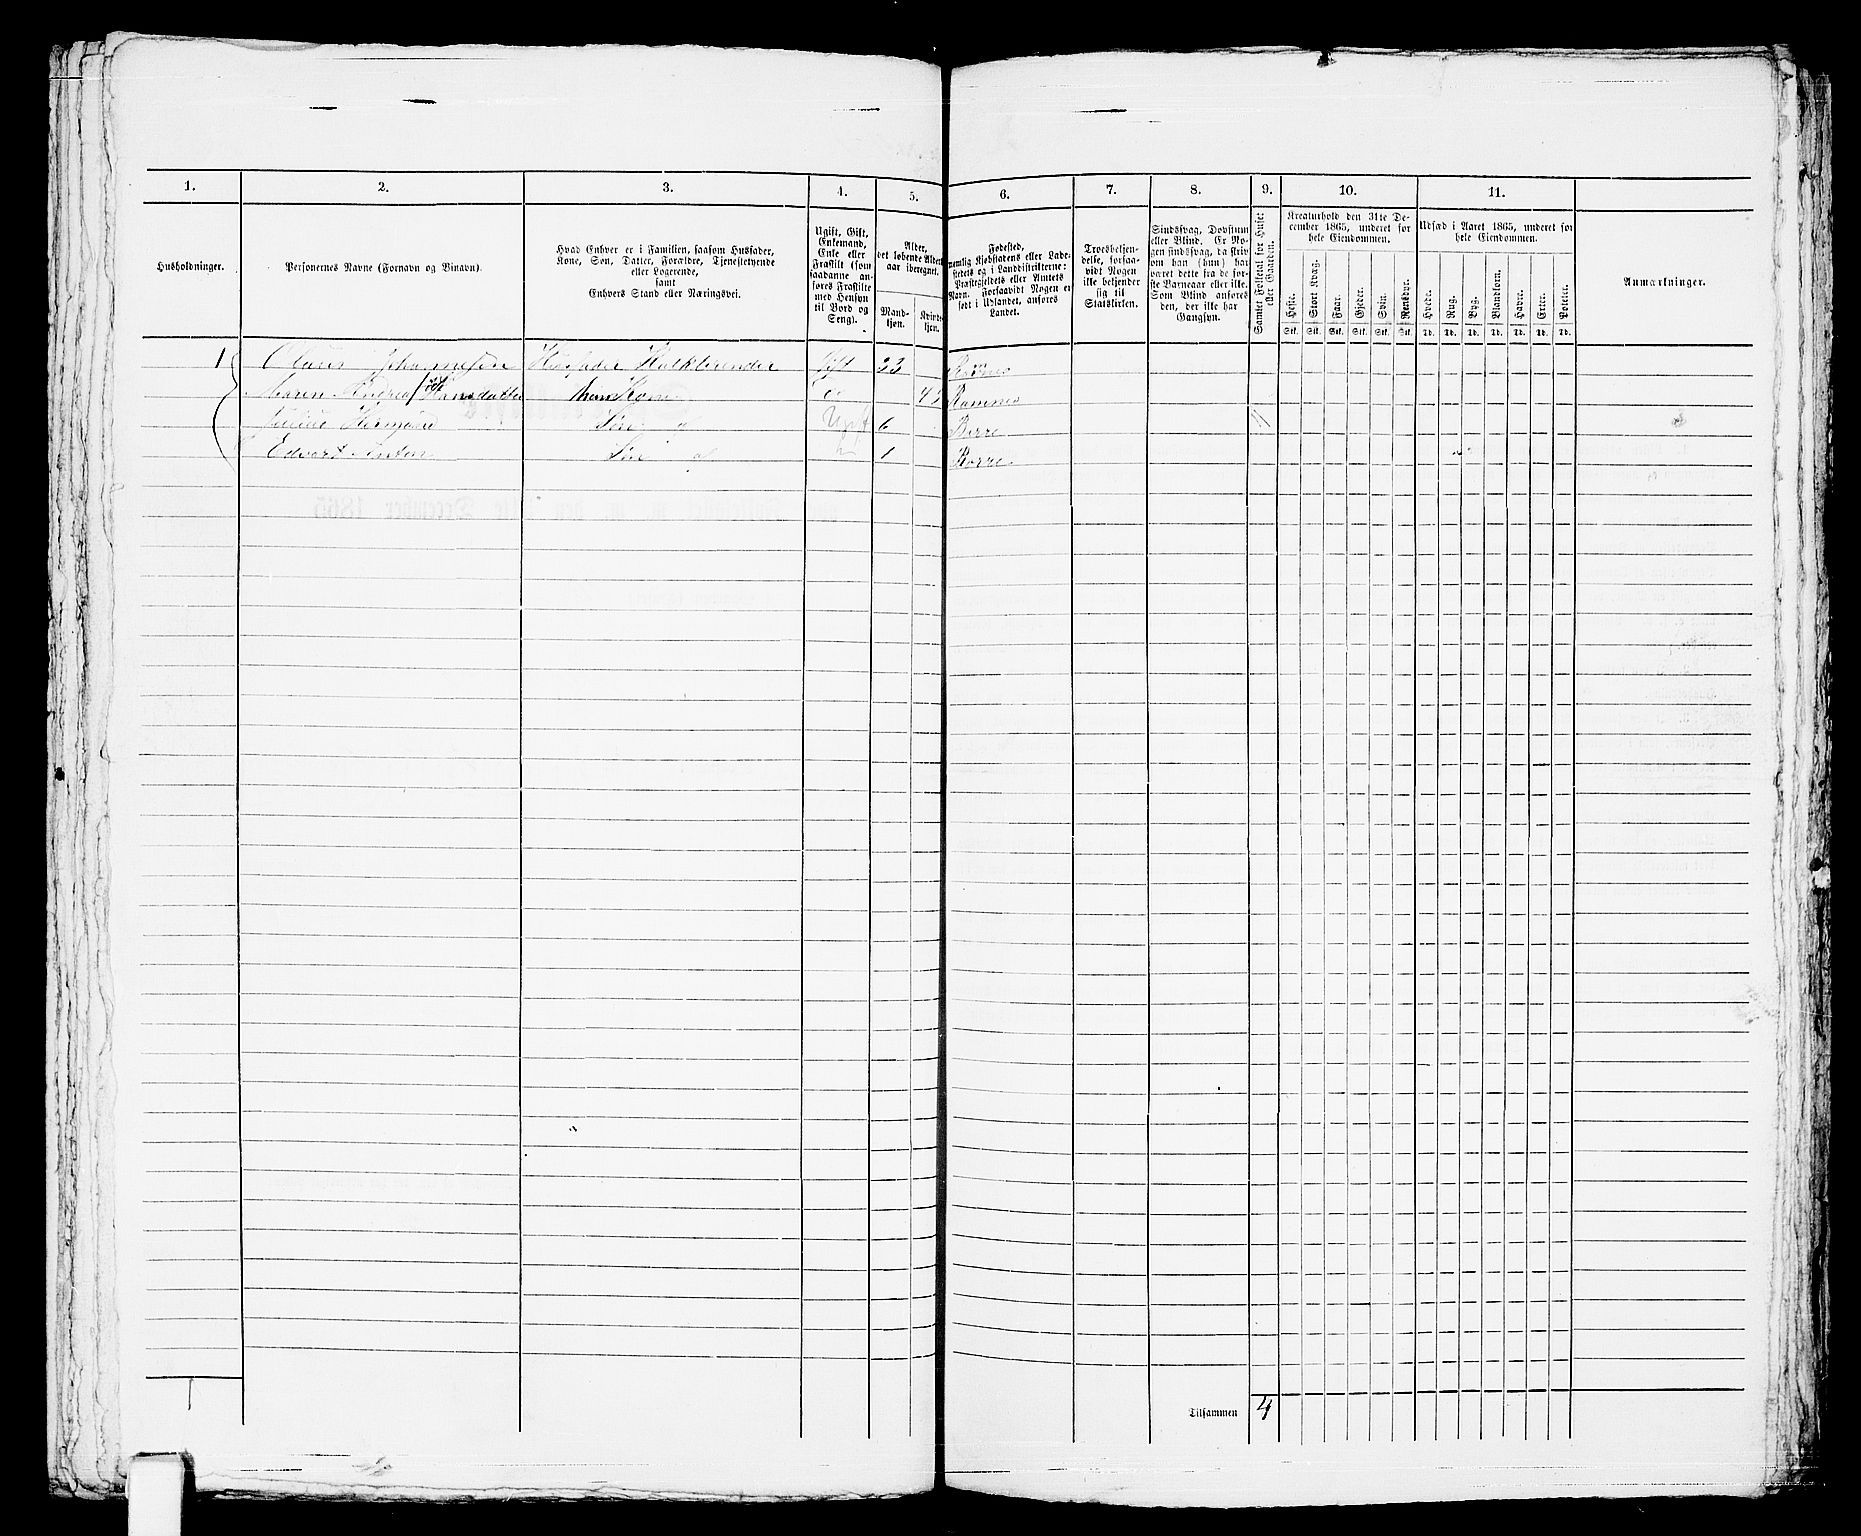 1.
2.
3.
4.
5.
6.
7.
8.
9.
10.
11.
Husholdninger.
Personernes Navne (Fornavn og Binavn).
Hvad Enhver er i Familien, saasom Husfader,
Kone, Søn, Datter, Forældre, Tjenestetyende
eller Logerende,
samt
Enhvers Stand eller Næringsvei.
Ugift, Gift,
Enkemand,
Enke eller
Fraskilt (som
saadanne an-
føres Fraskilte
med Hensyn
til Bord og
Seng).
Alder,
det løbende Alders-
aar iberegnet.
Mand-
kjøn.
Kvinde-
kjøn.
Fødested,
nemlig Kjøbstadens eller Lade-
stedets og i Landdistrikterne:
Præstegjeldets eller Amtets
Navn. Forsaavidt Nogen er
født i Udlandet, anføres
Landet.
Troesbekjen-
delse, forsaa-
vidt Nogen
ikke bekjender
sig til
Statskirken.
Sindssvag, Døvstum
eller Blind. Er No-
gen sindssvag, da skriv
om han (hun) har
været dette fra de før-
ste Barneaar eller ikke.
Som Blind anføres
den, der ikke har
Gangsyn.
Samlet Folketal for Huset
eller Gaarden.
Kreaturhold den 31te De-
cember 1865, underet for
hele Eiendommen.
Heste.
Stort Kvæg.
Faar.
Gjeder.
Svin.
Rensdyr.
Stk. Stk. Stk. Stk. Stk. Stk.
Udsæd i Aaret 1865, underet for
hele Eiendommen.
Hvede.
Rug.
Byg.
Blandkorn.
Havre.
Erter.
Poteter.
Td. Td. Td. Td. Td. Td. Td.
Anmærkninger.
1 Claus Johannesen Husfader Kalkbrender Gift 23
Maren Andrea Hansdatter hans Kone do Ramnes
Julius Hermann Søn af Ugift 6 Borre
Edvart Anton Søn af 1 Borre
1
Tilsammen 4